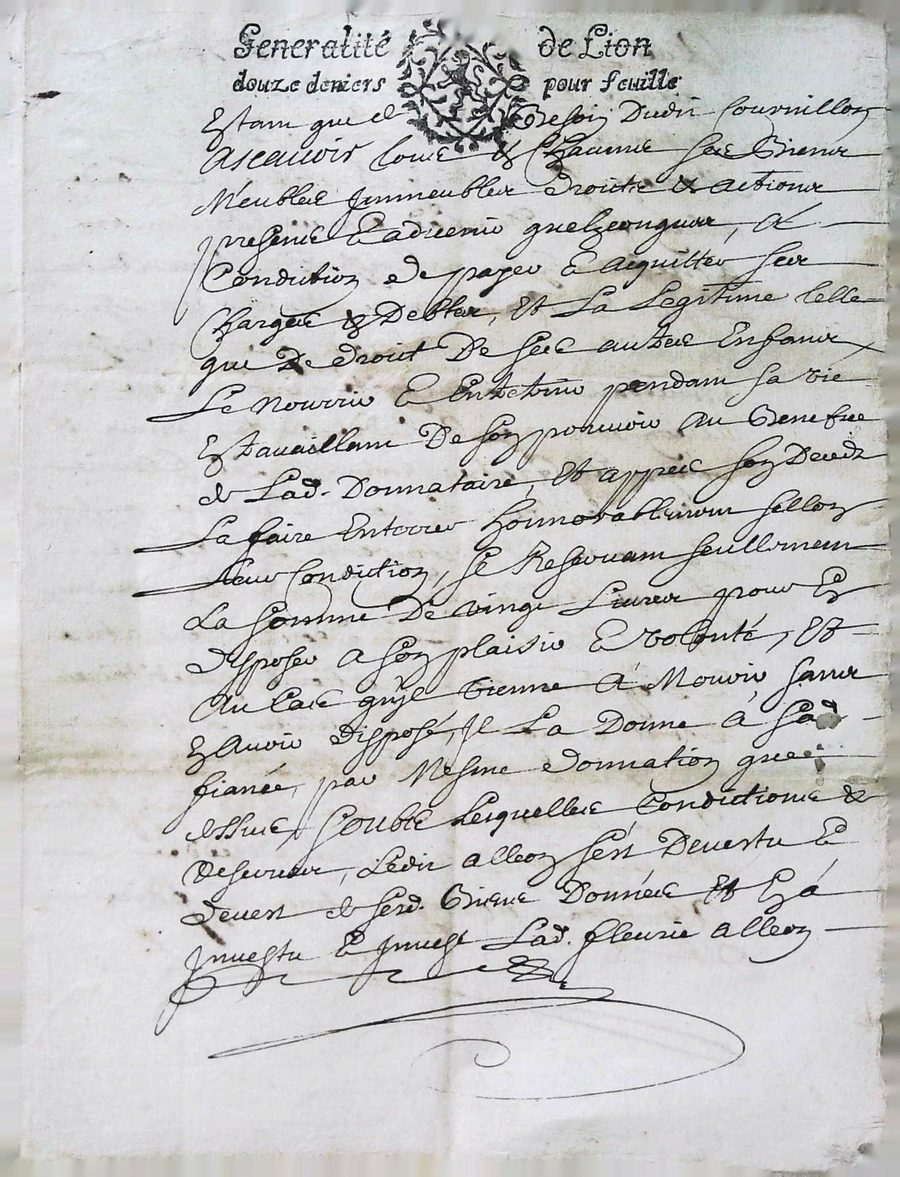 Generalité de Lion
douze deniers pour feuille
Estant que de besoin Dudit Cournillon
Ascauoir tous & Chacuns ses biens
Meubles Jmmeubles droicts & actions
presents E aduenir quelzconques, A
Condition de payer E acquitter ses
Charges & Debtes, Et La Legitime telle
que De droict De ses autres Enfans
Le nourrir E Entretenir pendant sa vie
En trauaillant De son pouuoir au benefice
de Lad. Donnataire, Et apprés son Deceds
La faire Enterrer honnorablement sellon
sa Condition, se Reseruant seullement
La somme De vingt Liures pour En
disposer a son plaisir E volonté, Et
Au Cas qu'il vienne A Mourir sans
En Auoir disposé, Il La Donne à sad
fiancée, par Mesme donnation que
dessus, soubs Lesquelles Conditions &
Reserues, Ledit alleon s'est Deuestu E
deuest de sesd. biens Donnés Et En a
Jnuestu E Jnuest Lad. fleurie alleon